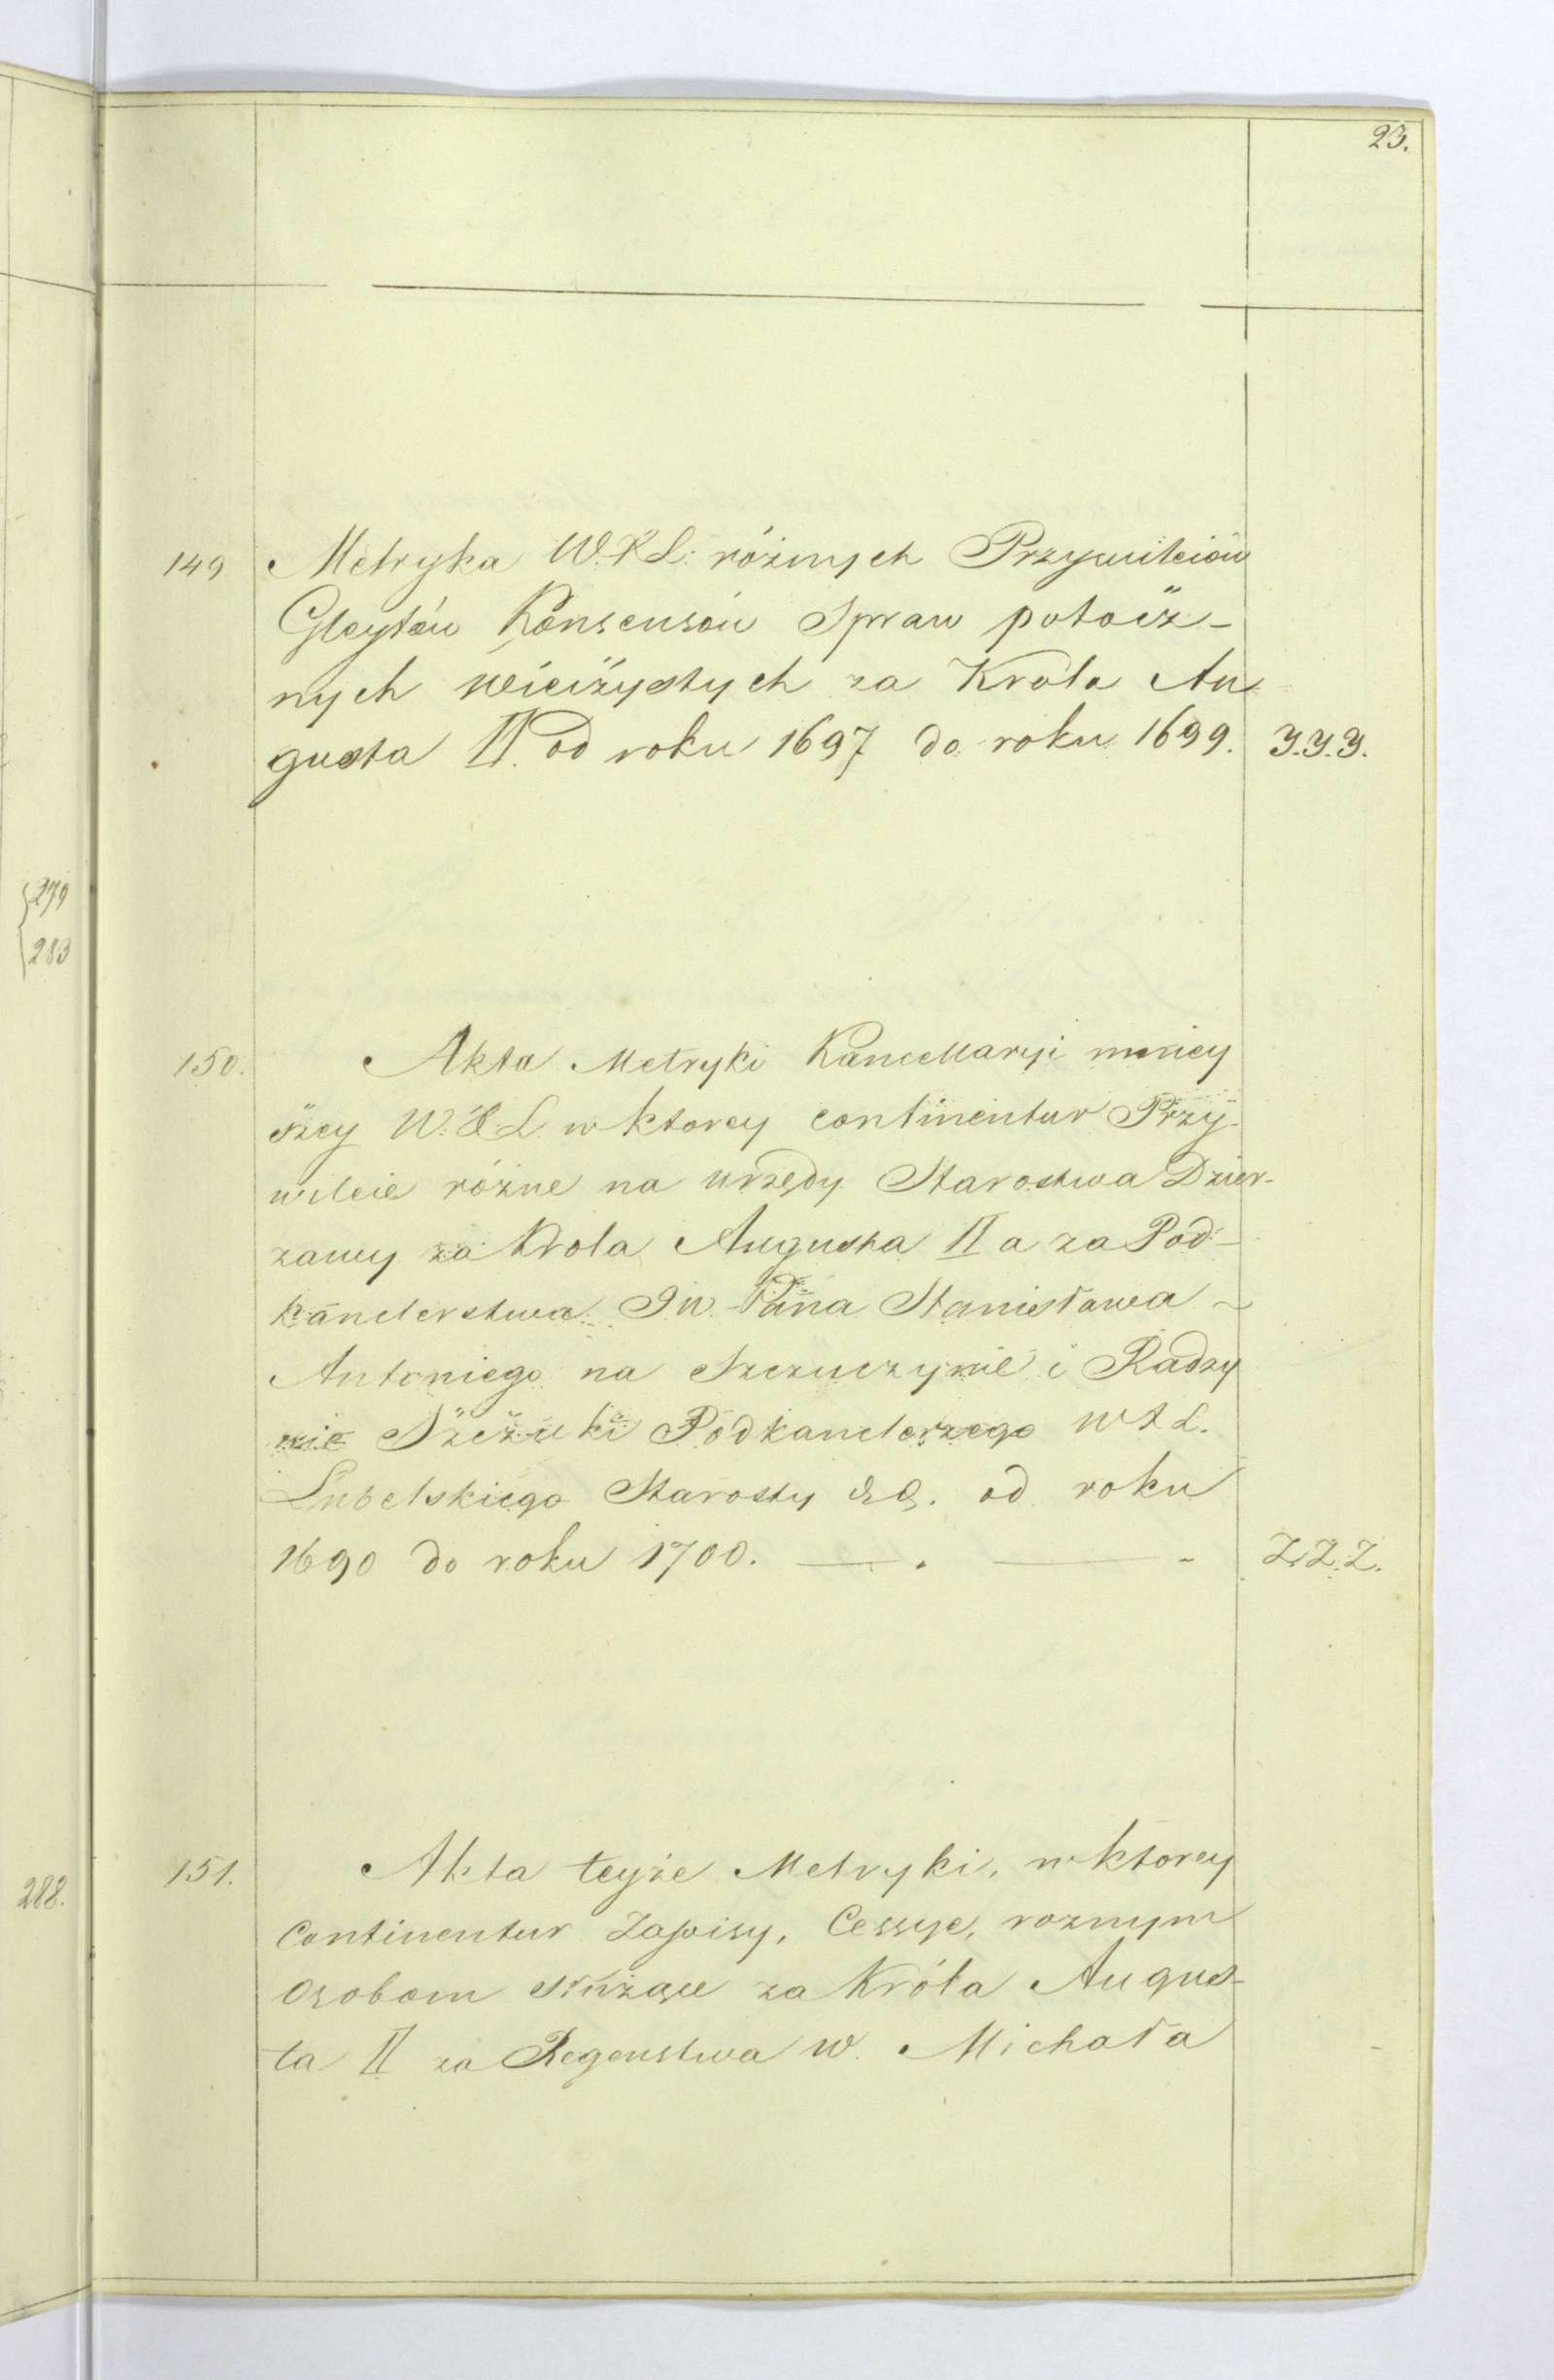 23.
149 Metryka W.X.L: różnych Przywileiów
Gleytów Konsensów Spraw potocz-
nych wieczystych za Krola Au
gusta II. od roku 1697 do roku 1699. Y.Y.Y.
279
283
150. Akta Metryki Kancellaryi mniey
szey W.X.L. w ktorey continentur Przy-
wileie różne na urzędy Starostwa Dzier-
zawy za Krola Augusta II a za Pod-
kanclerstwa JW Pana Stanisława
Antoniego na Szczuczynie i Radzy
nie Szczuki Podkanclerzego WXL.
Lubelskiego Starosty &c. od roku
1690 do roku 1700. Z.Z.Z.
288. 151. Akta teyże Metryki, w ktorey
Continentur Zapisy, Cessye, roznym
Osobom służące za Króla Augus-
ta II za Regenstwa W. Michała